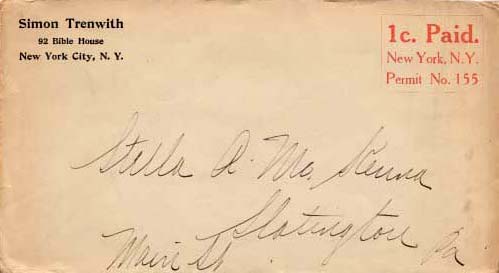 Simon Trenwith
92 Bible House
New York City, N. Y.
1c. Paid.
New York, N.Y.
Permit No. 155
Stella A. Mc. Kenna
Slatington
Main St. Pa